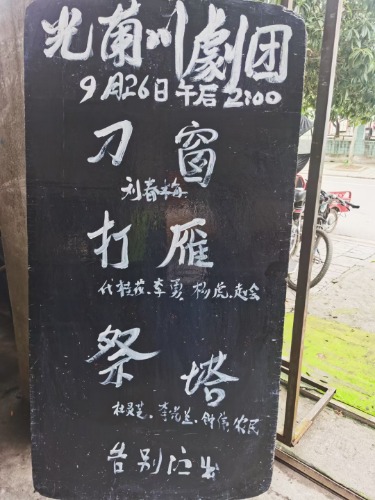 光菊川劇团
9月26日午后2:00
刀窗
刘春梅
打雁
代桂花、李勇、杨虎、赵会
祭塔
杜灵芝、李光兰、钟倩、农民
告别演出